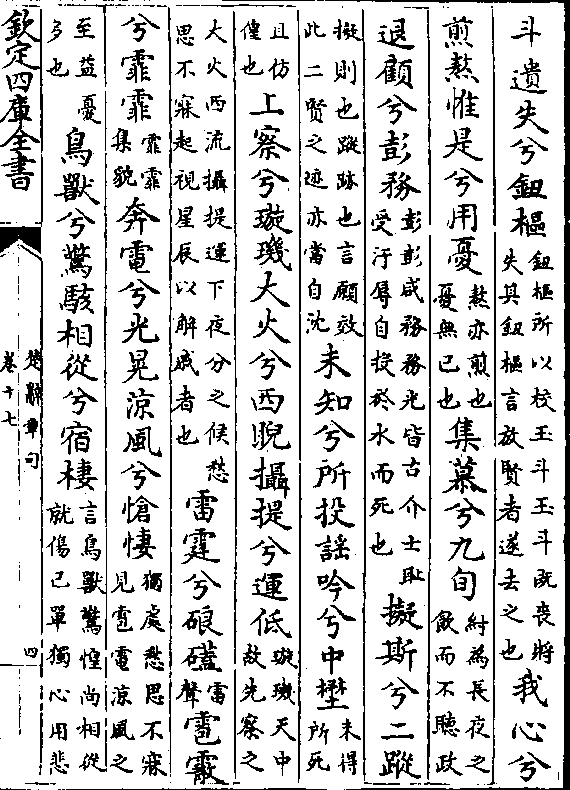 斗遺失兮鈕樞鈕樞所以校玉斗玉斗既喪將失其鈕樞言放賢者遂去之也我心兮
煎熬惟是兮用憂熬亦煎也憂無已也集慕兮九旬紂為長夜之飲而不聽政
退顧兮彭務彭彭咸務務光皆古介士耻受汙辱自投於水而死也擬斯兮二蹤
擬則也蹤跡也言願效此二賢之迹亦當自沈未知兮所投謡吟兮中壄未得所死
且仿偟也上察兮璇璣大火兮西睨攝提兮運低璇璣天中故先察之
大火西流攝提運下夜分之候愁思不寐起視星辰以解戚者也雷霆兮硠礚雷聲雹霰
兮霏霏霏霏集貌奔電兮光晃涼風兮愴悽獨處愁思不寐見雹電涼風之
至益憂多也鳥獸兮驚駭相從兮宿棲言鳥獸驚惶尚相從就傷已單獨心用悲
欽定四庫全書
楚辭章句
卷十七
四